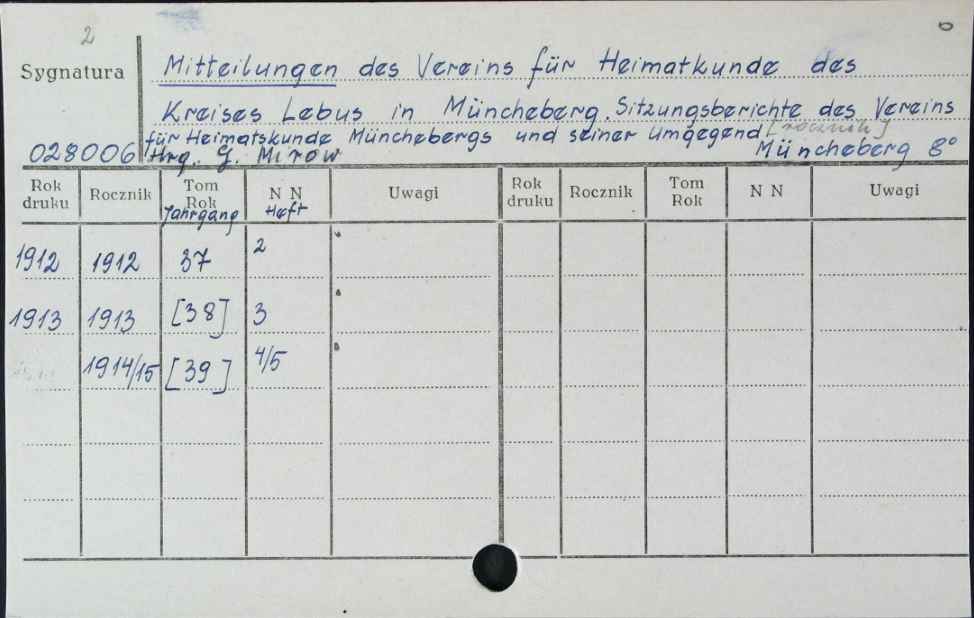 2
Sygnatura
Mitteilungen des Vereins für Heimatkunde des
Kreises Lebus in Müncheberg. Sitzungsberichte des Vereins
für Heimatskunde Münchebergs und seiner Umgegend [rocznik]
028006 Hrg. G. Mirow Müncheberg 8°
Rok druku Rocznik Tom Rok Jahrgang N N Heft Uwagi Rok druku Rocznik Tom Rok N N Uwagi
1912 1912 37 2
1913 1913 [38] 3
1914/15 [39] 4/5